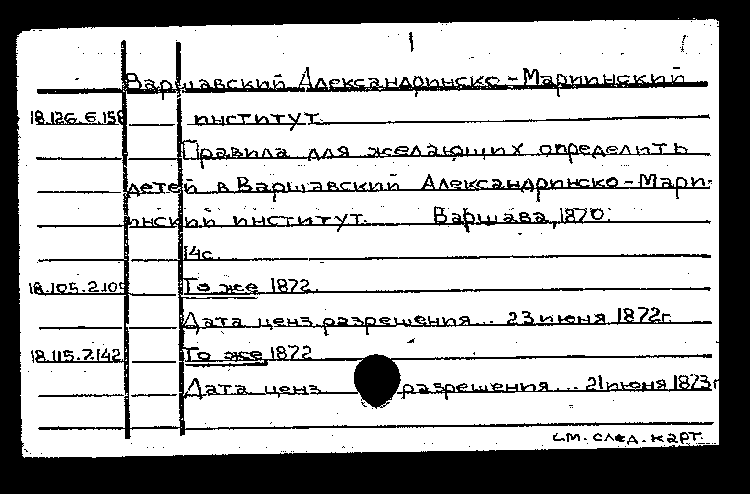 Варшавский Александринско-Мариинский
18.126.6.158 институт.
Правила для желающих определить
детей в Варшавский Александринско-Мари-
инский институт. Варшава, 1870.
14с.
18.105.2.109 То же 1872.
Дата ценз. разрешения... 23 июня 1872г.
18.115.7.142 То же, 1872
Дата ценз разрешения... 21 июня 1873г
см. след. карт.